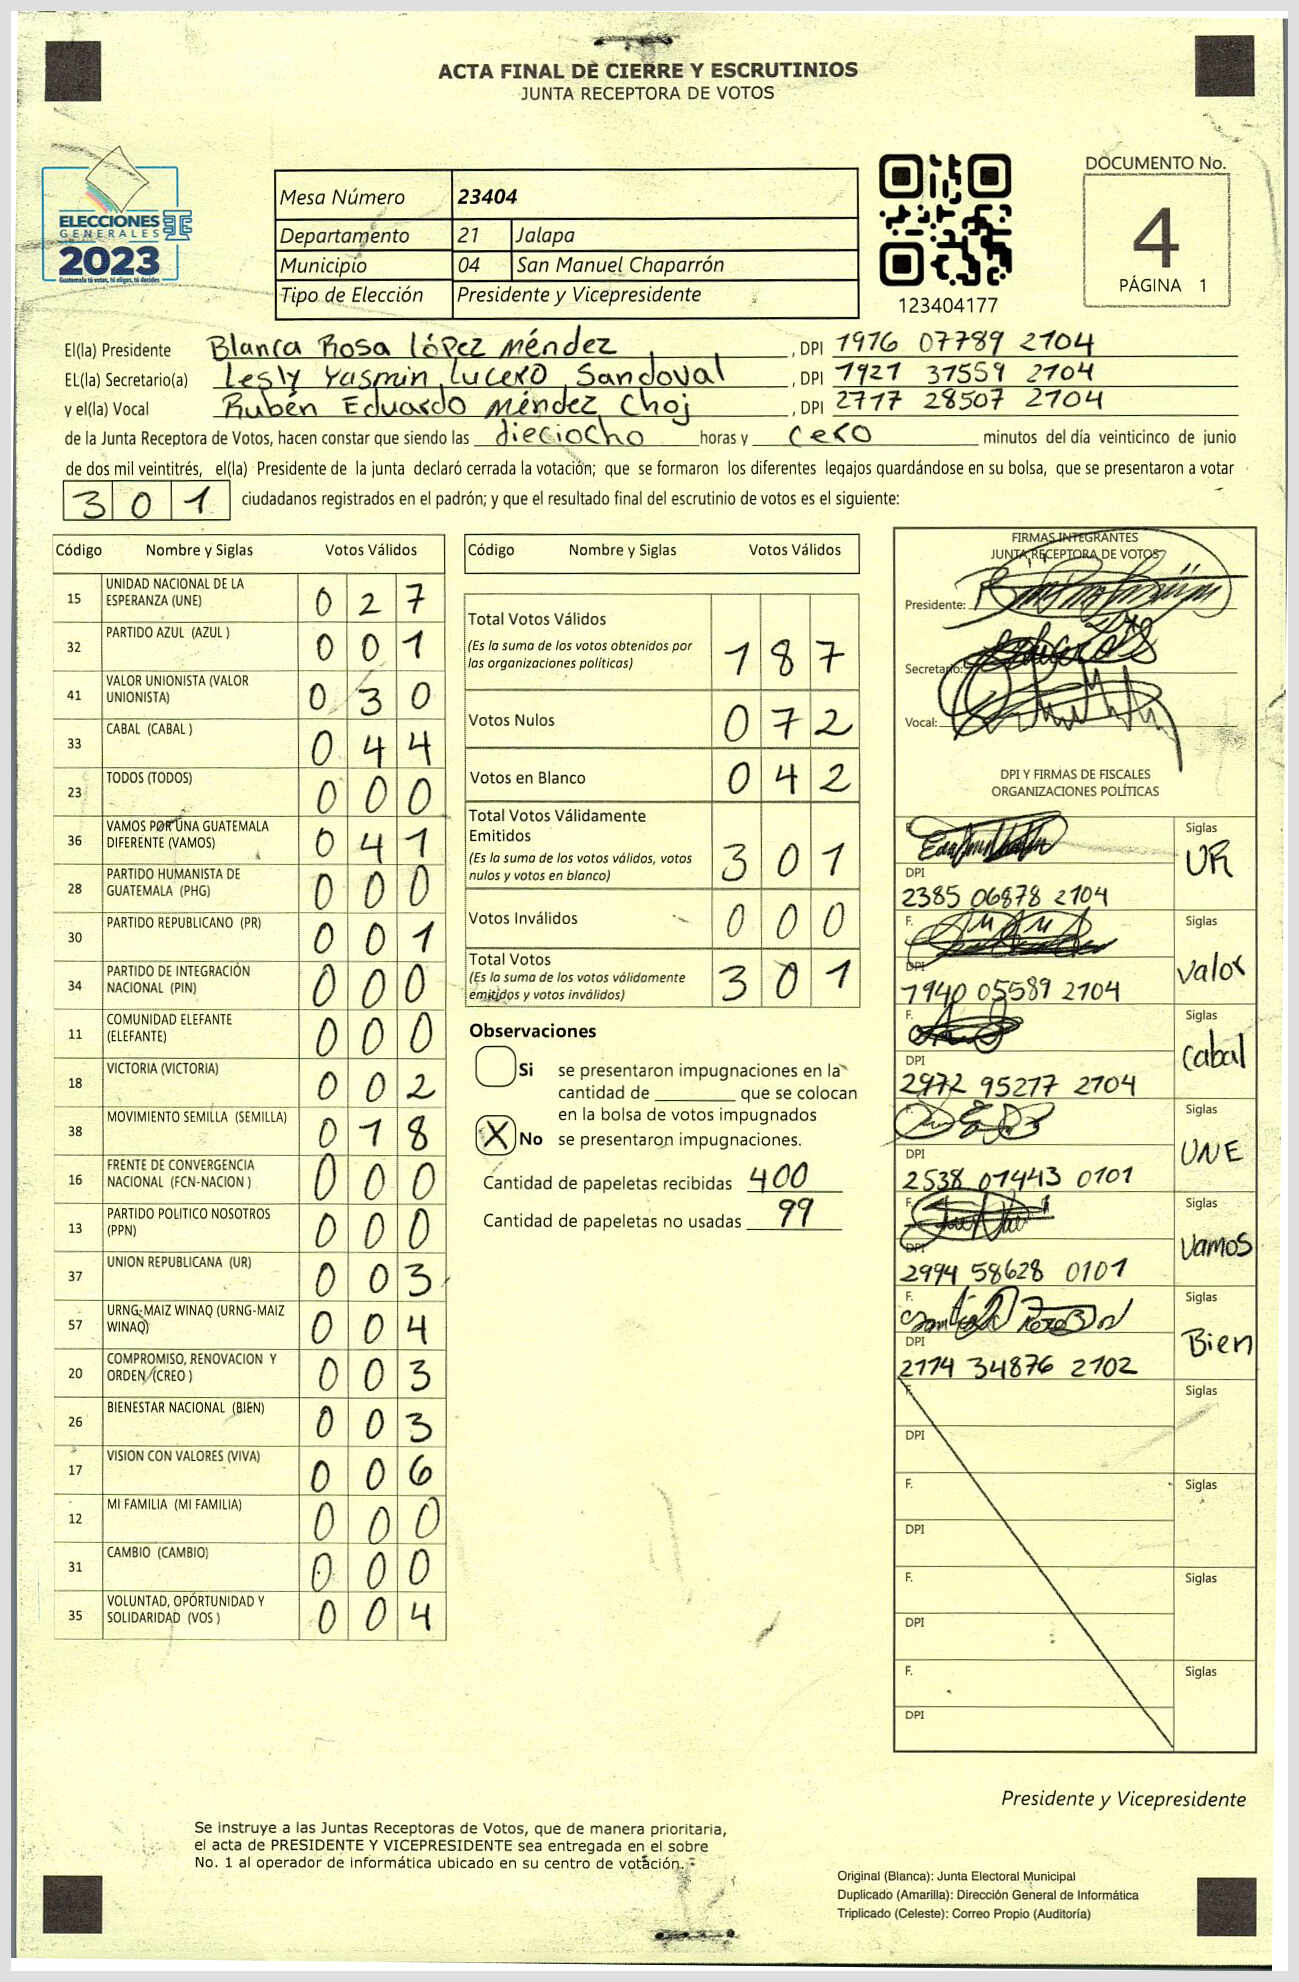 ACTA FINAL DE CIERRE Y ESCRUTINIOS
JUNTA RECEPTORA DE VOTOS
ELECCIONES
GENERALES
2023
Guatemala tú votas, tú eliges, tú decides
Mesa Número 23404
Departamento 21 Jalapa
Municipio 04 San Manuel Chaparrón
Tipo de Elección Presidente y Vicepresidente
123404177
DOCUMENTO No.
4
PÁGINA 1
El(la) Presidente Blanca Rosa López Méndez, DPI 1916 07789 2104
EL(la) Secretario(a) Lesly Yasmin Lucero Sandoval, DPI 1921 31559 2104
y el(la) Vocal Rubén Eduardo Méndez Choj, DPI 2717 28507 2104
de la Junta Receptora de Votos, hacen constar que siendo las dieciocho horas y cero minutos del día veinticinco de junio
de dos mil veintitrés, el(la) Presidente de la junta declaró cerrada la votación; que se formaron los diferentes legajos guardándose en su bolsa, que se presentaron a votar
301 ciudadanos registrados en el padrón; y que el resultado final del escrutinio de votos es el siguiente:
Código Nombre y Siglas Votos Válidos
15 UNIDAD NACIONAL DE LA ESPERANZA (UNE) 0 2 7
32 PARTIDO AZUL (AZUL ) 0 0 1
41 VALOR UNIONISTA (VALOR UNIONISTA) 0 3 0
33 CABAL (CABAL ) 0 4 4
23 TODOS (TODOS) 0 0 0
36 VAMOS POR UNA GUATEMALA DIFERENTE (VAMOS) 0 4 1
28 PARTIDO HUMANISTA DE GUATEMALA (PHG) 0 0 0
30 PARTIDO REPUBLICANO (PR) 0 0 1
34 PARTIDO DE INTEGRACIÓN NACIONAL (PIN) 0 0 0
11 COMUNIDAD ELEFANTE (ELEFANTE) 0 0 0
18 VICTORIA (VICTORIA) 0 0 2
38 MOVIMIENTO SEMILLA (SEMILLA) 0 1 8
16 FRENTE DE CONVERGENCIA NACIONAL (FCN-NACION ) 0 0 0
13 PARTIDO POLITICO NOSOTROS (PPN) 0 0 0
37 UNION REPUBLICANA (UR) 0 0 3
57 URNG-MAIZ WINAQ (URNG-MAIZ WINAQ) 0 0 4
20 COMPROMISO, RENOVACION Y ORDEN (CREO ) 0 0 3
26 BIENESTAR NACIONAL (BIEN) 0 0 3
17 VISION CON VALORES (VIVA) 0 0 6
12 MI FAMILIA (MI FAMILIA) 0 0 0
31 CAMBIO (CAMBIO) 0 0 0
35 VOLUNTAD, OPORTUNIDAD Y SOLIDARIDAD (VOS ) 0 0 4
Código Nombre y Siglas Votos Válidos
Total Votos Válidos
(Es la suma de los votos obtenidos por las organizaciones políticas) 1 8 7
Votos Nulos 0 7 2
Votos en Blanco 0 4 2
Total Votos Válidamente Emitidos
(Es la suma de los votos válidos, votos nulos y votos en blanco) 3 0 1
Votos Inválidos 0 0 0
Total Votos
(Es la suma de los votos válidamente emitidos y votos inválidos) 3 0 1
Observaciones
Si se presentaron impugnaciones en la
cantidad de ________ que se colocan
en la bolsa de votos impugnados
X No se presentaron impugnaciones.
Cantidad de papeletas recibidas 400
Cantidad de papeletas no usadas 99
FIRMAS INTEGRANTES
JUNTA RECEPTORA DE VOTOS
Presidente:
Secretario:
Vocal:
DPI Y FIRMAS DE FISCALES
ORGANIZACIONES POLÍTICAS
F. Siglas UR
DPI 2385 06878 2104
F. Siglas Valor
DPI 1940 05589 2104
F. Siglas Cabal
DPI 2972 95277 2104
F. Siglas UNE
DPI 2538 07443 0101
F. Siglas Vamos
DPI 2994 58628 0101
F. Siglas Bien
DPI 2174 34876 2102
F. Siglas
DPI
F. Siglas
DPI
F. Siglas
DPI
F. Siglas
DPI
Presidente y Vicepresidente
Se instruye a las Juntas Receptoras de Votos, que de manera prioritaria,
el acta de PRESIDENTE Y VICEPRESIDENTE sea entregada en el sobre
No. 1 al operador de informática ubicado en su centro de votación.
Original (Blanca): Junta Electoral Municipal
Duplicado (Amarilla): Dirección General de Informática
Triplicado (Celeste): Correo Propio (Auditoría)